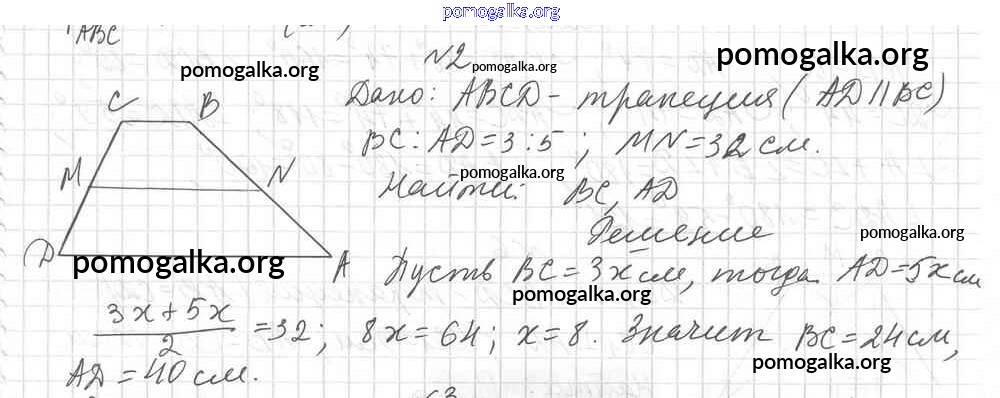 pomogalka.org
ABC
N2
pomogalka.org
pomogalka.org
pomogalka.org
Дано: ABCD - трапеция (AD || BC)
C B
BC : AD = 3 : 5 ; MN = 32 см.
M N
pomogalka.org
Найти: BC, AD
Решение
pomogalka.org
D A
pomogalka.org
Пусть BC = 3x см, тогда AD = 5x см
pomogalka.org
3x + 5x / 2 = 32; 8x = 64; x = 8. Значит BC = 24 см,
pomogalka.org
AD = 40 см.